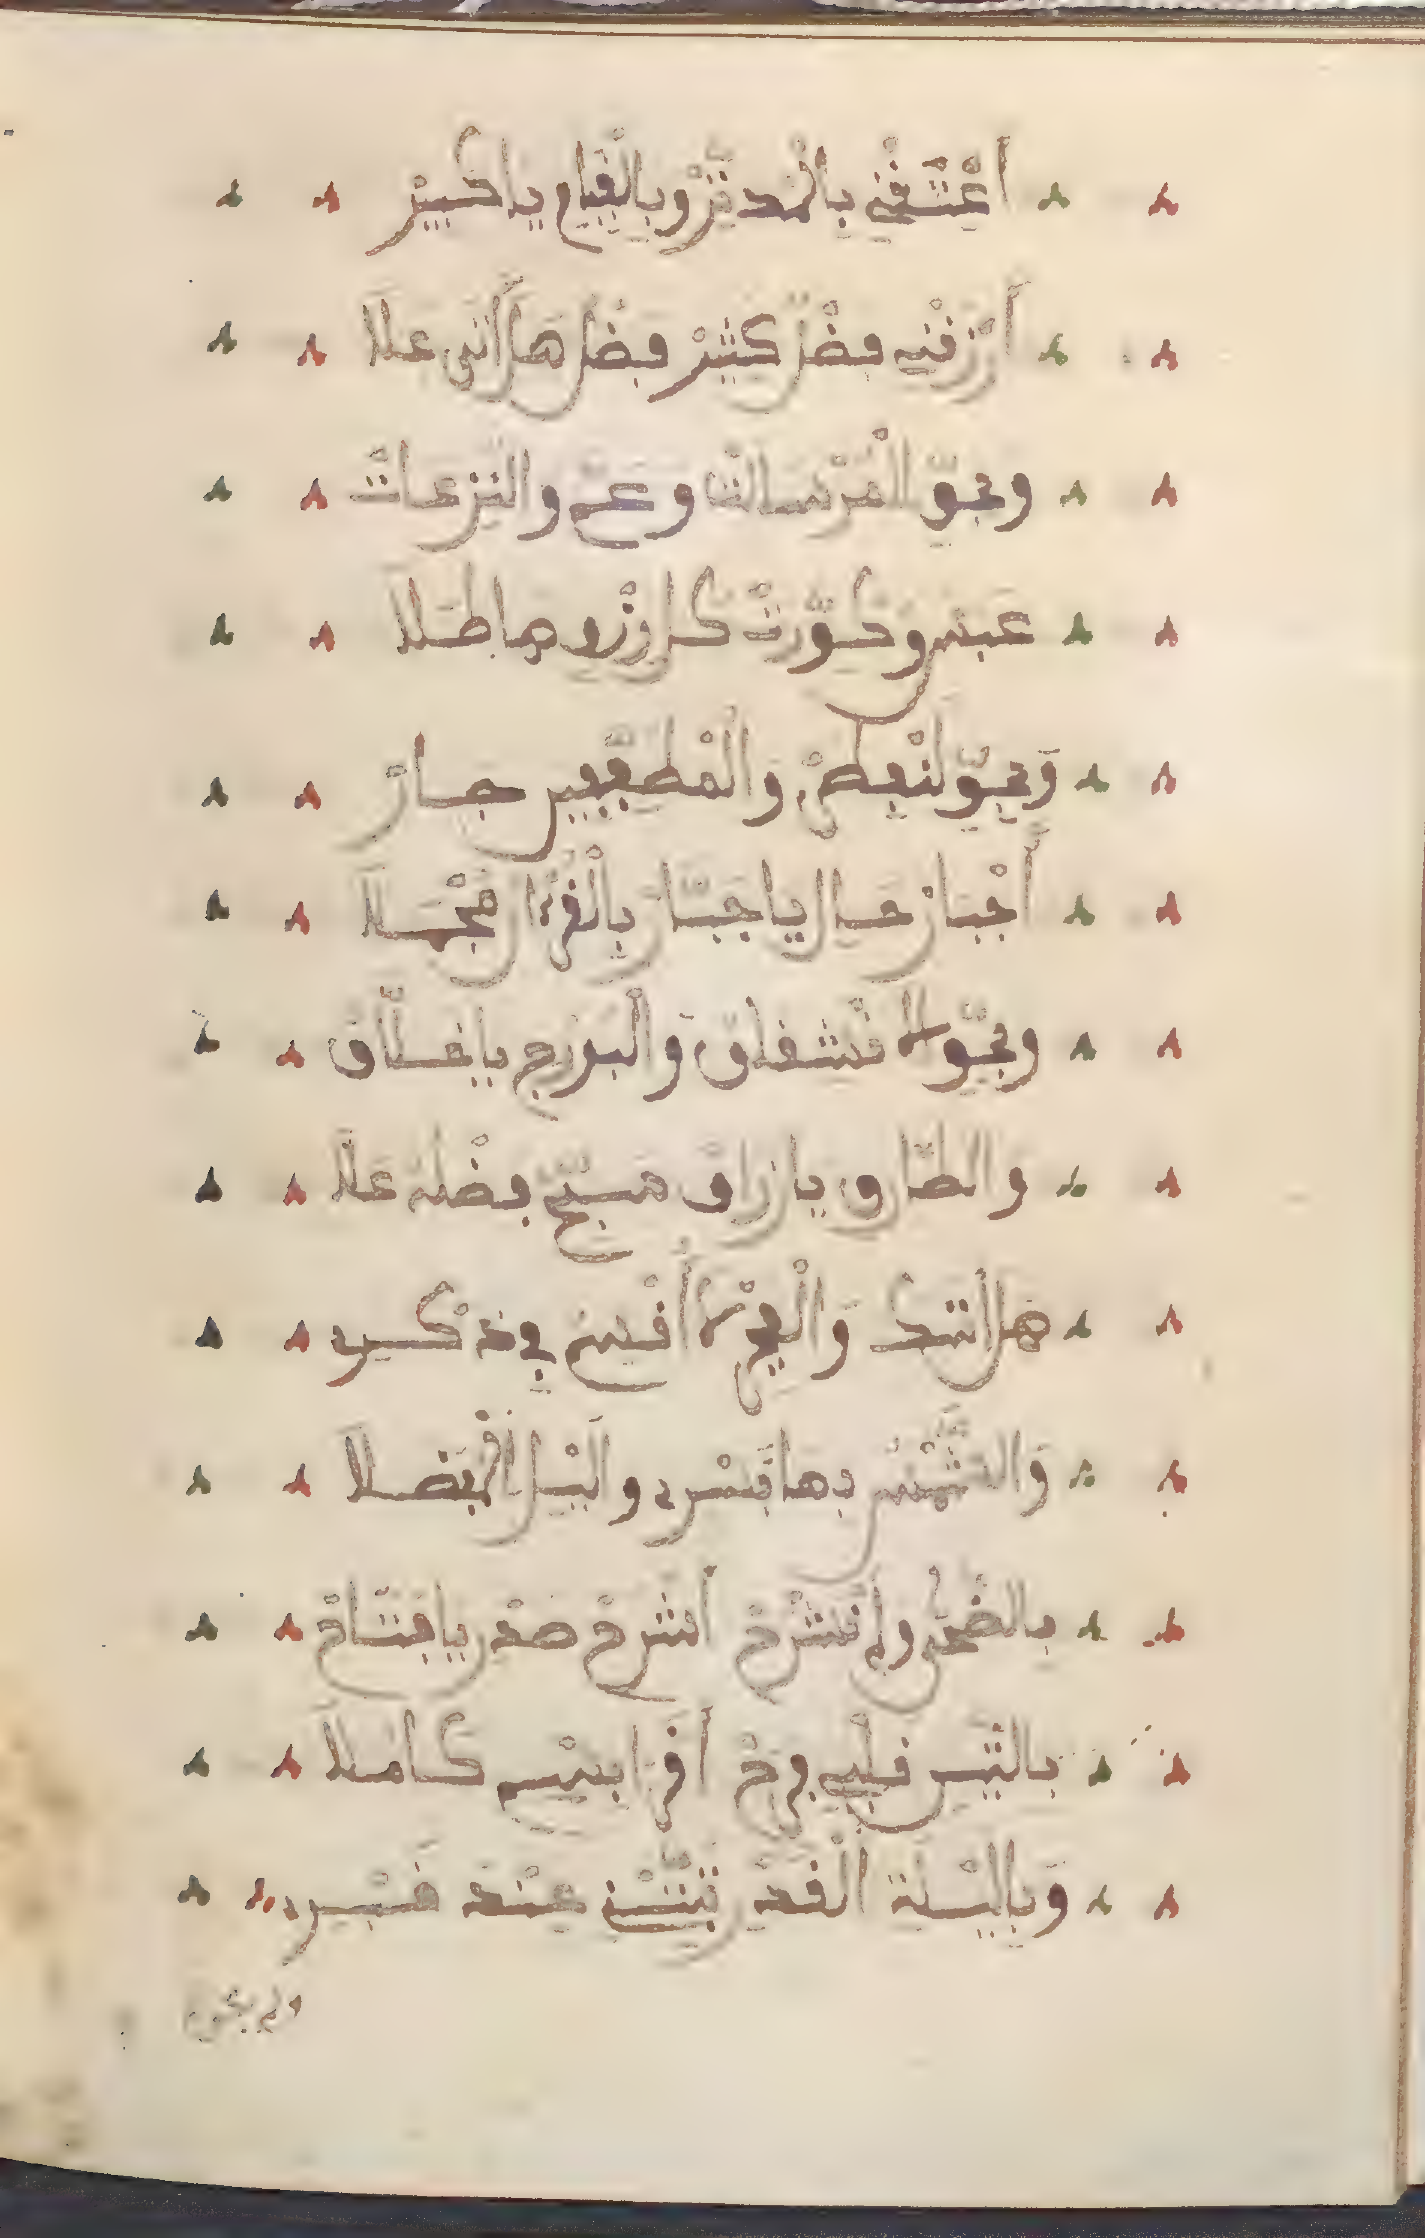 أعتقني بالمدثر وبالقيام يا كبير
أرزقني فضل كثير فضل هل أتى علا
وبحق المرسلات وعم والنزعات
عبس وكورت كل وزر
وبحق انفطر والمطففين جار
أجبار حال يا جبار بالفرار
وبحق الانشقاق والبروج يا خلاق
والطارق يا رزاق سبح فضله علا
هل أتاك والفجر أقسم في ذكر
والشمس بها قسر واليل
بالضحى ولم نشرح أشرح صدر يا فتاح
بالتين قلبي فرح أقرا باسم كاملا
وباليلة القدر ثبتني عند قبر
ولم يكن